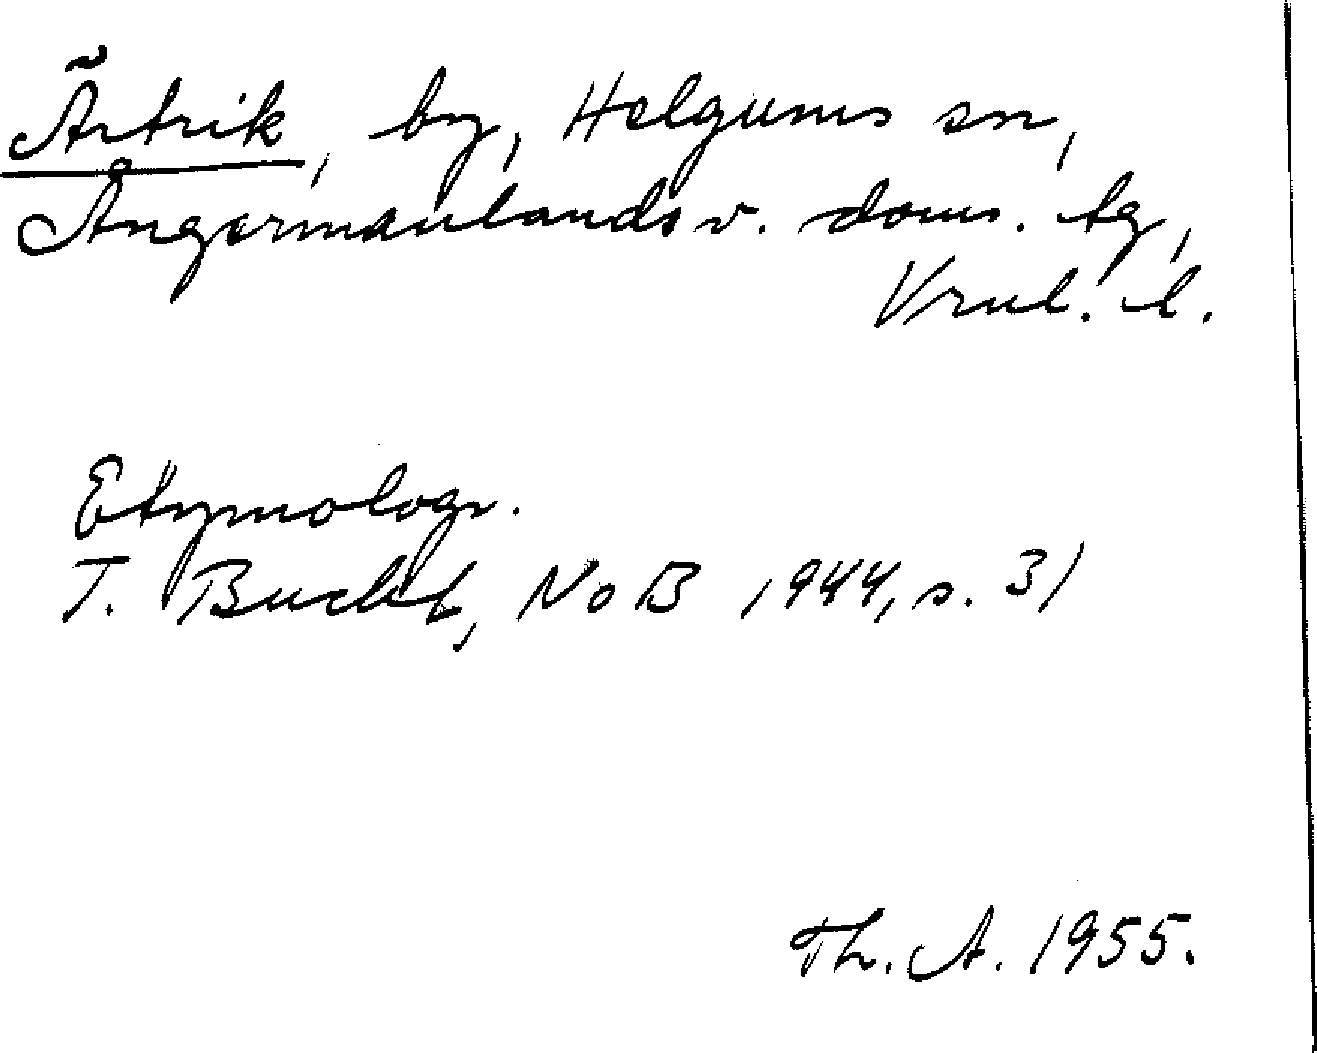 Ärtrik, by, Helgums sn,
Ångermanlands v. doms. tg,
Vrnl. l.
Etymologi.
T. Bucht, NoB 1944, s. 31
Th. A. 1955.